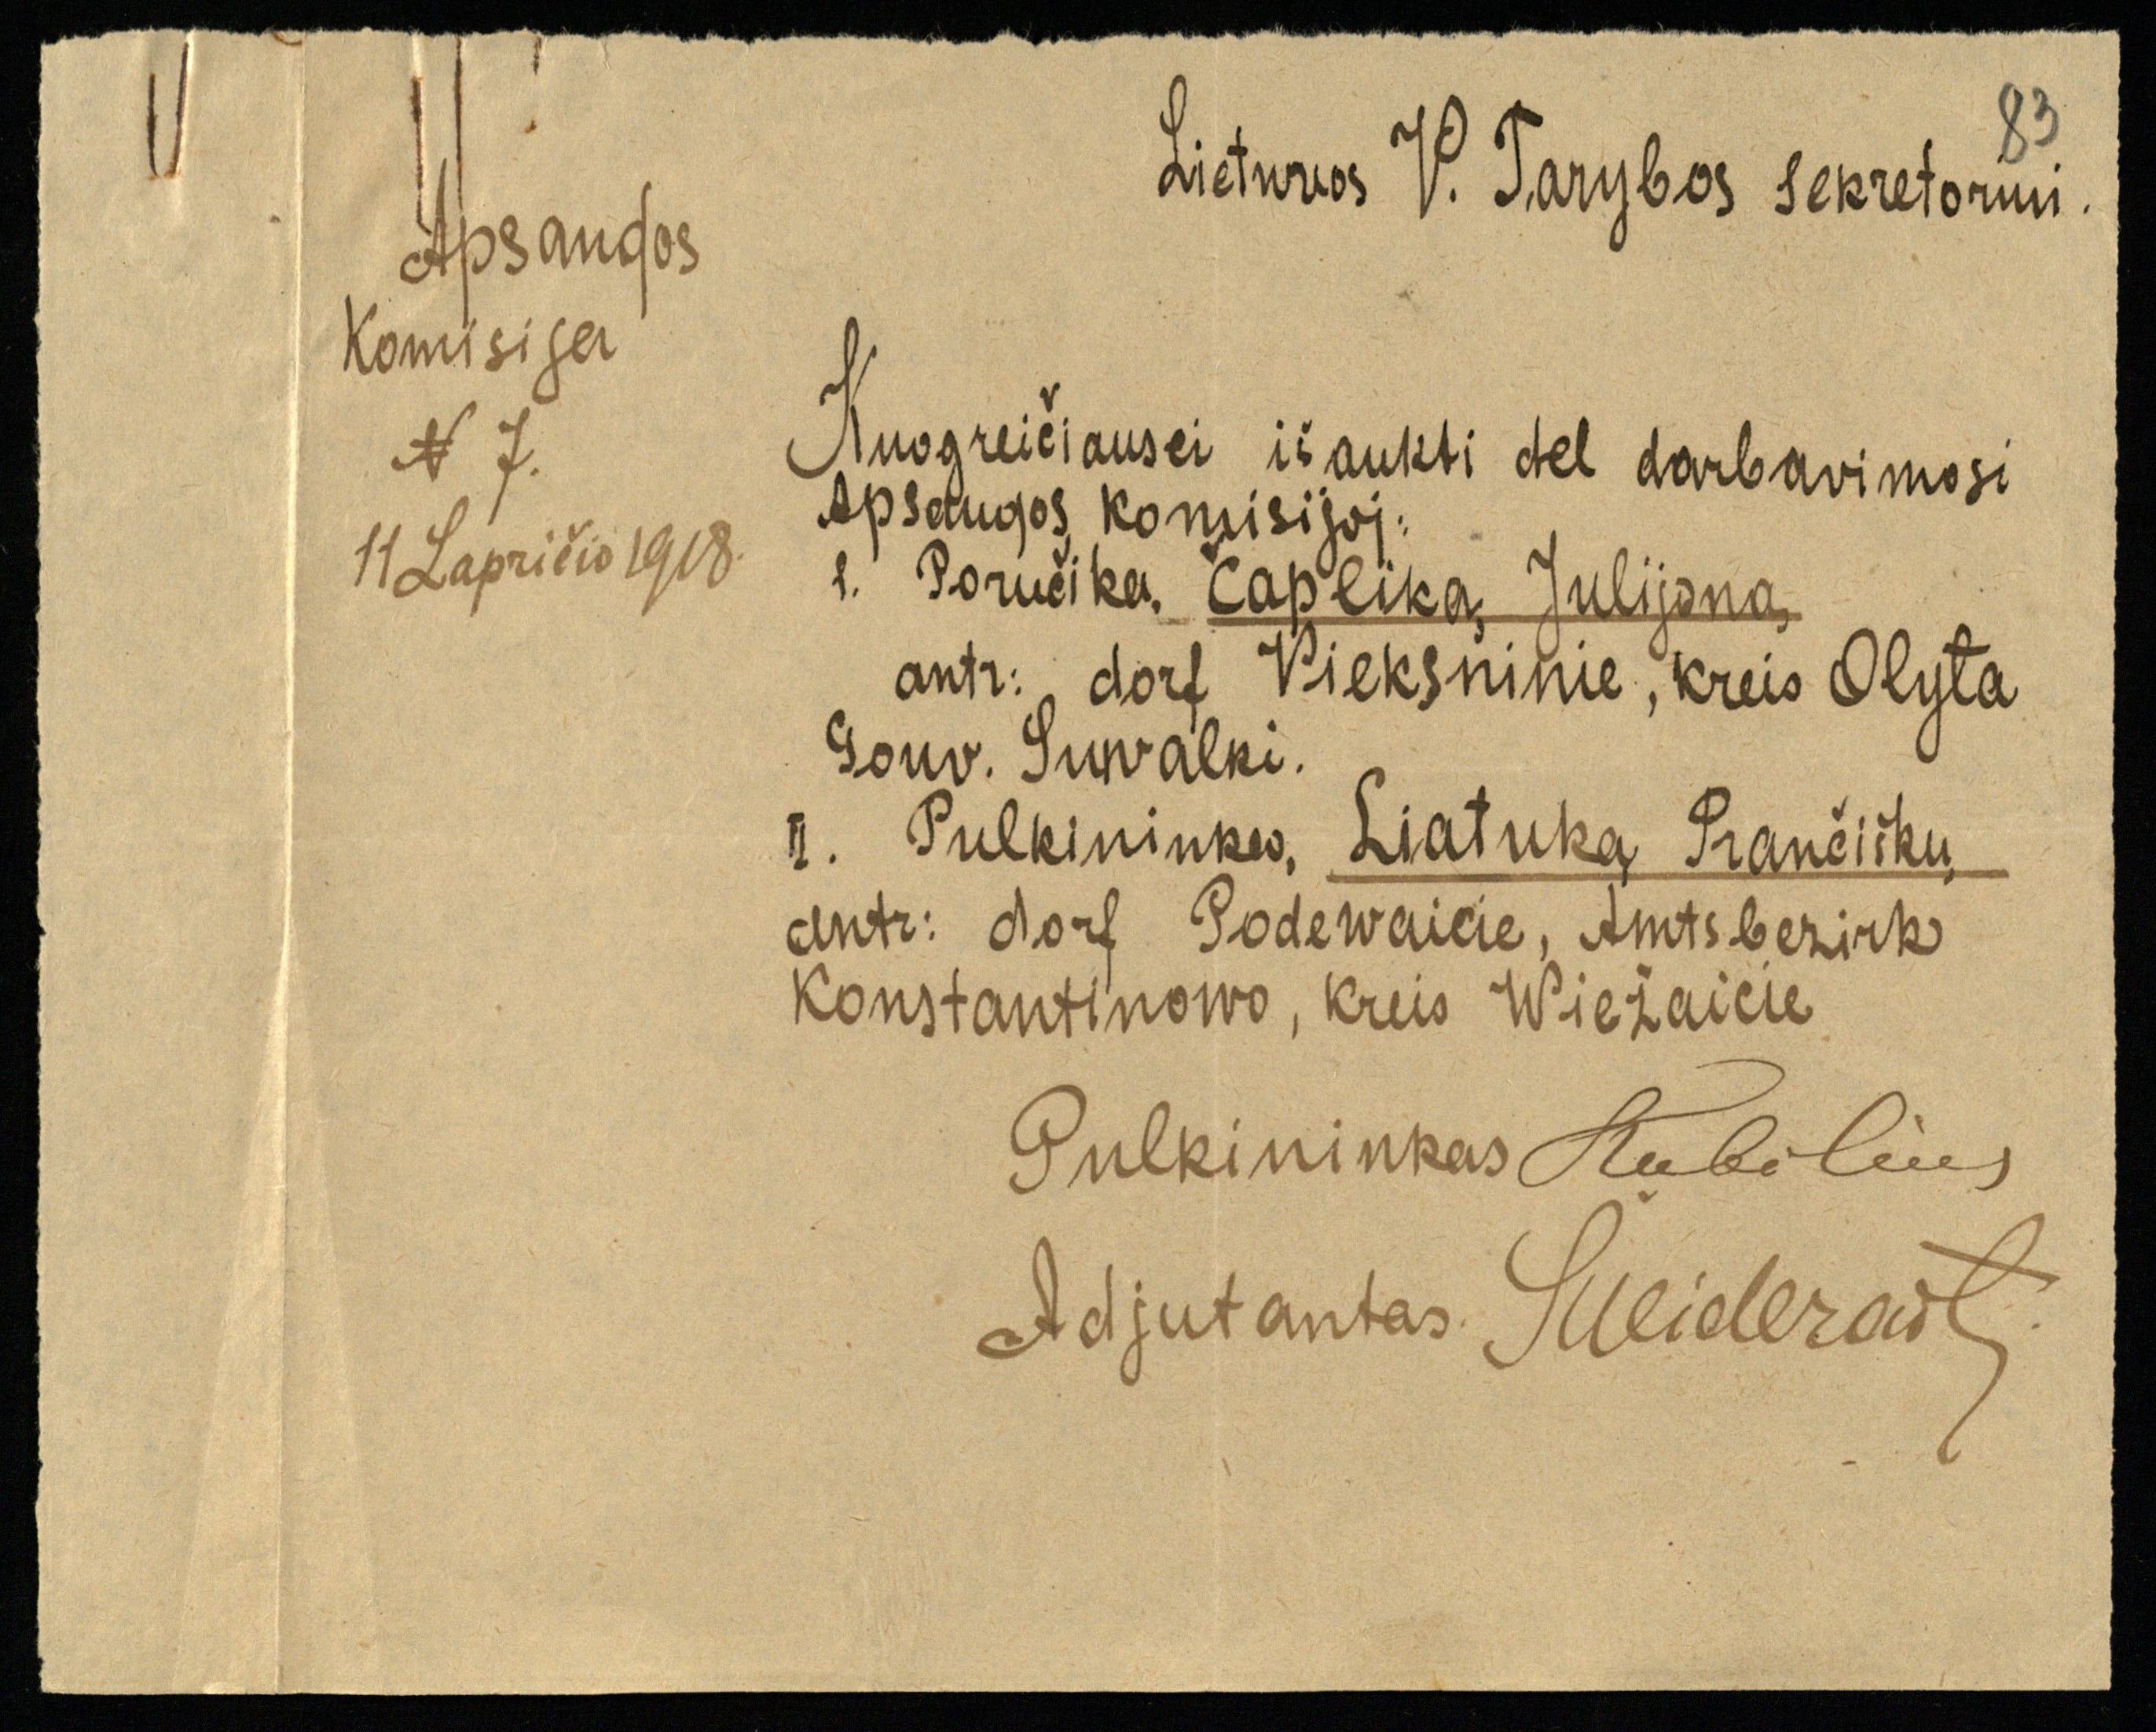 83
Lietuvos V. Tarybos sekretoriui.
Apsaugos
Komisija
N 7.
11 Lapričio 1918.
Kuogreičiausei išaukti del darbavimosi
Apsaugos komisijoj:
1. Poručiką, Čapliką, Julijoną,
antr: dorf Vieksninie, kreis Olyta
Gouv. Suwalki.
II. Pulkininką, Liatuką Prančišku,
antr: dorf Podewaicie, Amtsbezirk
Konstantinowo, kreis Wiežaicie
Pulkininkas Kubilius
Adjutantas